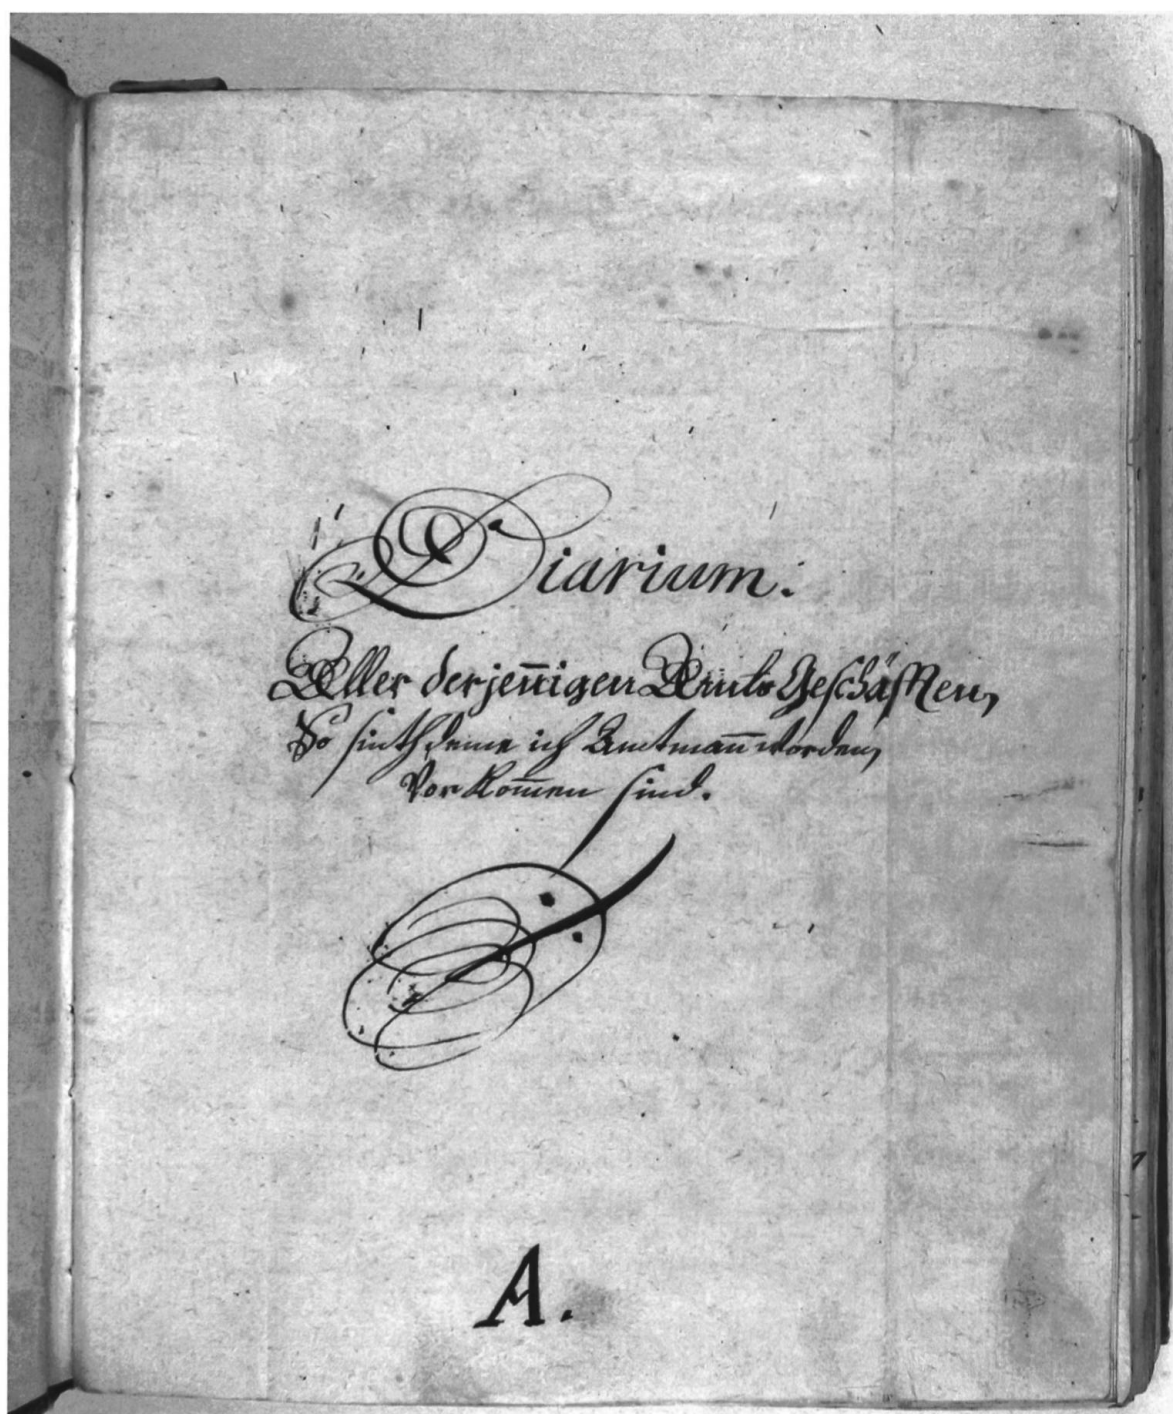 Diarium.
Aller derjen̄igen Ambts Geschäfften,
So sinthdeme ich Ambtman̄ worden,
Vorkom̄en sind.
A.